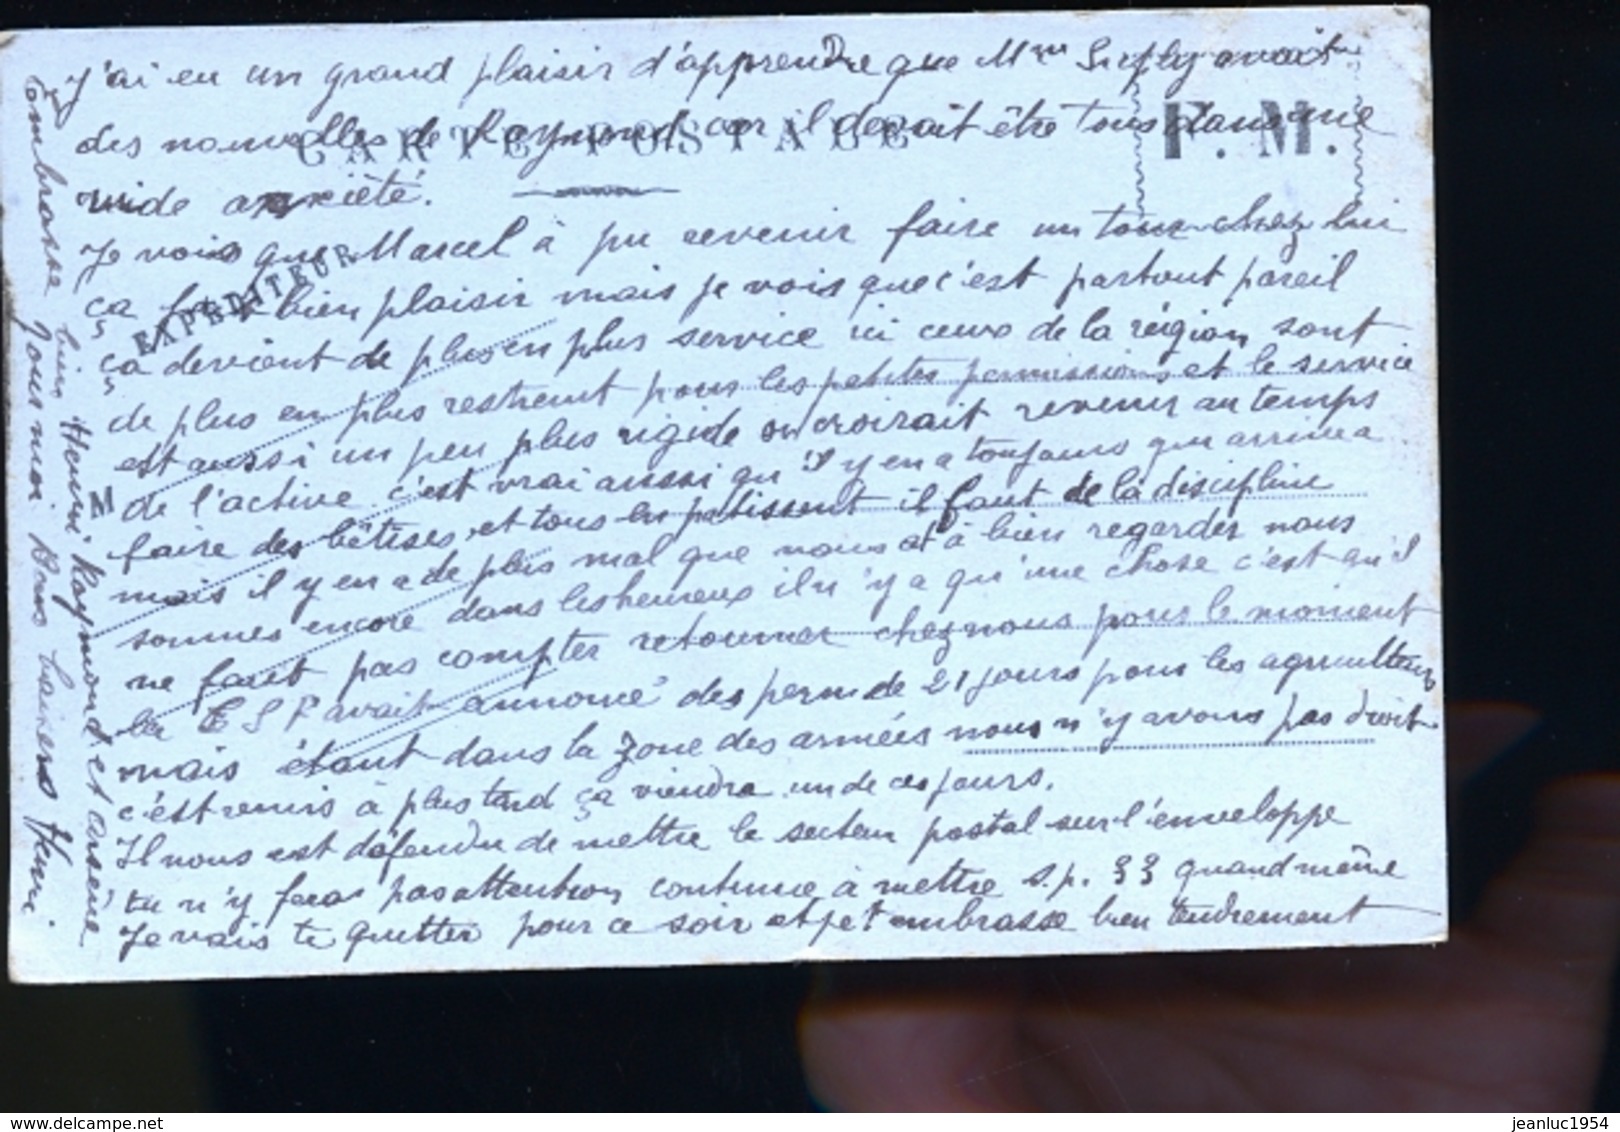 j'ai eu un grand plaisir d'apprendre que Mme avait
des nouvelles de Raymond car il devait être tous dans une
rude anxiété.
Je vois que Marcel à pu revenir faire un tour chez lui
ça fait bien plaisir mais je vois que c'est partout pareil
ça devient de plus en plus service ici ceux de la région sont
de plus en plus restreint pour les petites permissions et le service
est aussi un peu plus rigide on croirait revenir au temps
de l'active. c'est vrai aussi qu'il y en a toujours qui arrive a
faire des bêtises et tous en patissent il faut de la discipline
mais il y en a de plus mal que nous et à bien regarder nous
sommes encore dans les heureux il n'y a qu'une chose c'est qu'il
ne faut pas compter retourner chez nous pour le moment
la TSF avait annoncé des perm de 21 jours pour les agriculteurs
mais étant dans la zone des armées nous n'y avons pas droit
c'est remis à plus tard ça viendra un de ces jours.
Il nous est défendu de mettre le secteur postal sur l'enveloppe
tu n'y feras pas attention continue à mettre s.p. 33 quand même
Je vais te quitter pour ce soir et je t'embrasse bien tendrement
Embrasse
bien Henri Raymond et Arsène
pour moi Bons baisers Henri
CARTE POSTALE
F. M.
EXPÉDITEUR
http://www.delcampe.net
jeanluc1954